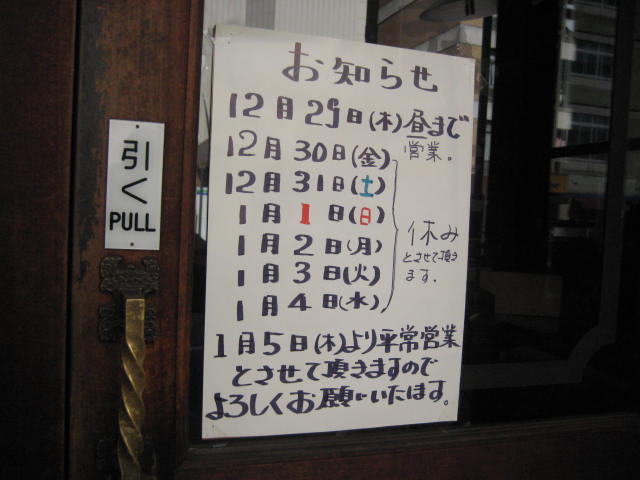 お知らせ
12月29日(木)昼まで
営業。
12月30日(金)
12月31日(土)
1月1日(日)
1月2日(月)
1月3日(火)
1月4日(水)
休み
とさせて頂き
ます。
1月5日(木)より平常営業
とさせて頂きますので
よろしくお願いいたします。
引く
PULL